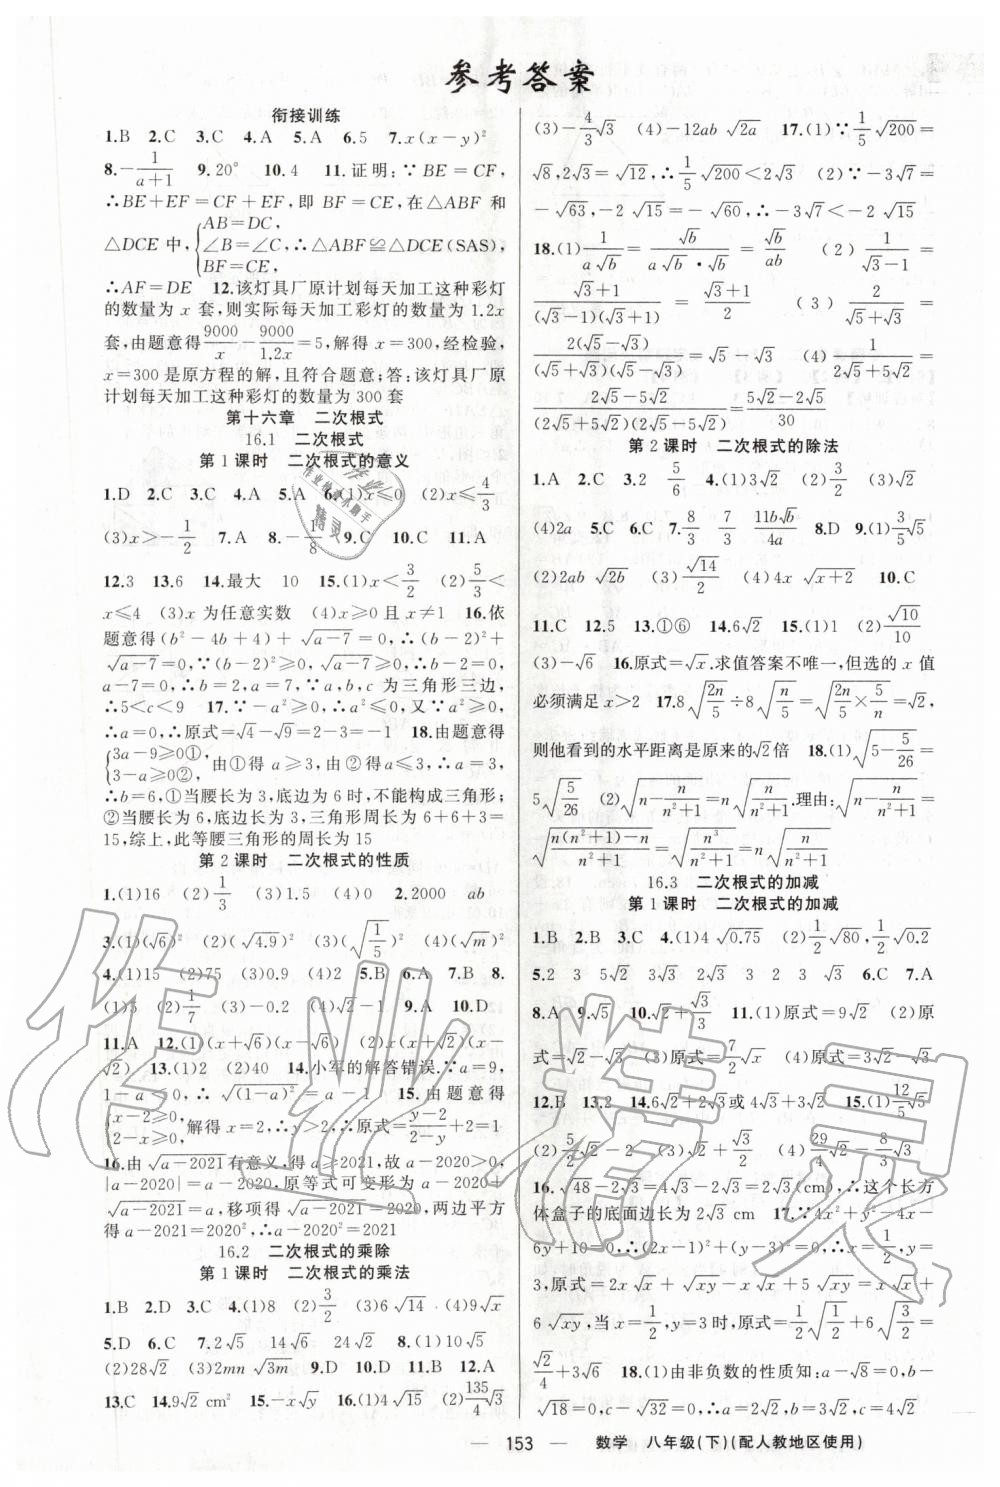 参考答案
衔接训练
1.B 2.C 3.C 4.A 5.A 6.5 7.x(x-y)²
8.-1/(a+1) 9.20° 10.4 11.证明:∵BE=CF,
∴BE+EF=CF+EF,即 BF=CE,在△ABF 和
△DCE 中,{AB=DC, ∠B=∠C, BF=CE, ∴△ABF≌△DCE(SAS),
∴AF=DE 12.该灯具厂原计划每天加工这种彩灯
的数量为 x 套,则实际每天加工彩灯的数量为 1.2x
套,由题意得 9000/x - 9000/1.2x = 5,解得 x=300,经检验,
x=300 是原方程的解,且符合题意;答:该灯具厂原
计划每天加工这种彩灯的数量为 300 套
第十六章 二次根式
16.1 二次根式
第 1 课时 二次根式的意义
1.D 2.C 3.C 4.A 5.A 6.(1)x≤0 (2)x≤4/3
(3)x>-1/2 7.A 8.-1/8 9.C 10.C 11.A
12.3 13.6 14.最大 10 15.(1)x<3/2 (2)5/3<
x≤4 (3)x 为任意实数 (4)x≥0 且 x≠1 16.依
题意得(b²-4b+4)+√(a-7)=0,∴(b-2)²+
√(a-7)=0,∵(b-2)²≥0,√(a-7)≥0,∴b-2=0,
a-7=0,∴b=2,a=7,∵a,b,c 为三角形三边,
∴5<c<9 17.∵-a²≥0,∴a²≤0,又∵a²≥0,
∴a=0,∴原式=√4-√9=2-3=-1 18.由题意得
{3a-9≥0①, 3-a≥0②, 由①得 a≥3,由②得 a≤3,∴a=3,
∴b=6,①当腰长为 3,底边为 6 时,不能构成三角形;
②当腰长为 6,底边长为 3,三角形周长为 6+6+3=
15,综上,此等腰三角形的周长为 15
第 2 课时 二次根式的性质
1.(1)16 (2)1/3 (3)1.5 (4)0 2.2000 ab
3.(1)(√6)² (2)(√4.9)² (3)(√(1/5))² (4)(√m)²
4.(1)15 (2)75 (3)0.9 (4)2 5.B 6.A 7.B 8.
(1)5 (2)1/7 (3)-0.2 (4)√2-1 9.A 10.D
11.A 12.(1)(x+√6)(x-√6) (2)x(x+√2)(x-
√2) 13.(1)2 (2)40 14.小军的解答错误.∵a=9,
1-a<0,∴√(1-a)²=a-1 15.由题意得
{x-2≥0, 2-x≥0, 解得 x=2,∴y>2,∴原式=(y-2)/(2-y)+2=1
16.由√(a-2021)有意义,得 a≥2021,故 a-2020>0,
|a-2020|=a-2020,原等式可变形为 a-2020
+√(a-2021)=a,移项得√(a-2021)=2020,两边平方
得 a-2021=2020²,∴a-2020²=2021
16.2 二次根式的乘除
第 1 课时 二次根式的乘法
1.B 2.D 3.C 4.(1)8 (2)3/2 (3)6√14 (4)9√x
5.D 6.C 7.2√5 14√6 24√2 8.(1)10√5
(2)28√2 (3)2mn√3m 9.D 10.D 11.B 12.A
13.C 14.9√2 cm² 15.-√y 16.(1)4√15 (2)135/4√3
(3)-4/3√3 (4)-12ab√2a 17.(1)∵1/5√200=
√8,2√3=√12,∴1/5√200<2√3 (2)∵-3√7=
-√63,-2√15=-√60,∴-3√7<-2√15
18.(1)1/(a√b)=√b/(a√b·√b)=√b/ab (2)1/(√3-1)=
(√3+1)/((√3-1)(√3+1))=(√3+1)/2 (3)2/(√5+√3)=
2(√5-√3)/((√5+√3)(√5-√3))=√5-√3 (4)1/(2√5+5√2)=
(2√5-5√2)/((2√5+5√2)(2√5-5√2))=(5√2-2√5)/30
第 2 课时 二次根式的除法
1.A 2.C 3.2 5/6 4.(1)3√2 (2)√5 (3)√2
(4)2a 5.C 6.C 7.8/3 7/3 11b√b/4a 8.D 9.(1)3/5√5
(2)2ab√2b (3)√14/2 (4)4x√(x+2) 10.C
11.C 12.5 13.①⑥ 14.6√2 15.(1)1 (2)√10/10
(3)-√6 16.原式=√x.求值答案不唯一,但选的 x 值
必须满足 x>2 17.8√(2n/5)÷8√(n/5)=√(2n/5×5/n)=√2,
则他看到的水平距离是原来的√2倍 18.(1)√(5-5/26)=
5√(5/26) (2)√(n-n/(n²+1))=n√(n/(n²+1)).理由:√(n-n/(n²+1))=
√((n(n²+1)-n)/(n²+1))=√(n³/(n²+1))=n√(n/(n²+1))
16.3 二次根式的加减
第 1 课时 二次根式的加减
1.B 2.B 3.C 4.(1)4√0.75 (2)1/2√80,√0.2
5.2 3 5√2 3√3 2√3 3 3√3 6.C 7.A
8.A 9.√5 10.√2+√3/3 11.(1)原式=9√2 (2)原
式=√2-√5 (3)原式=7/2√x (4)原式=3√2-√3
12.B 13.2 14.6√2+2√3或4√3+3√2 15.(1)12/5√5
(2)5/2√2-√3 (3)√2+√3/2 (4)29/4√2-8/3√3
16.√48-2√3=4√3-2√3=2√3(cm),∴这个长方
体盒子的底面边长为 2√3 cm 17.∵4x²+y²-4x-
6y+10=0,∴(2x-1)²+(y-3)²=0,∴x=1/2,y=
3,原式=2x√x+√xy-x√x+5√xy=x√x+
6√xy,当 x=1/2,y=3 时,原式=1/2√(1/2)+6√(3/2)=
√2/4+3√6 18.(1)由非负数的性质知:a-√8=0,b-
√18=0,c-√32=0,∴a=√8=2√2,b=√18=
— 153 — 数学 八年级(下)(配人教地区使用)
作业精灵